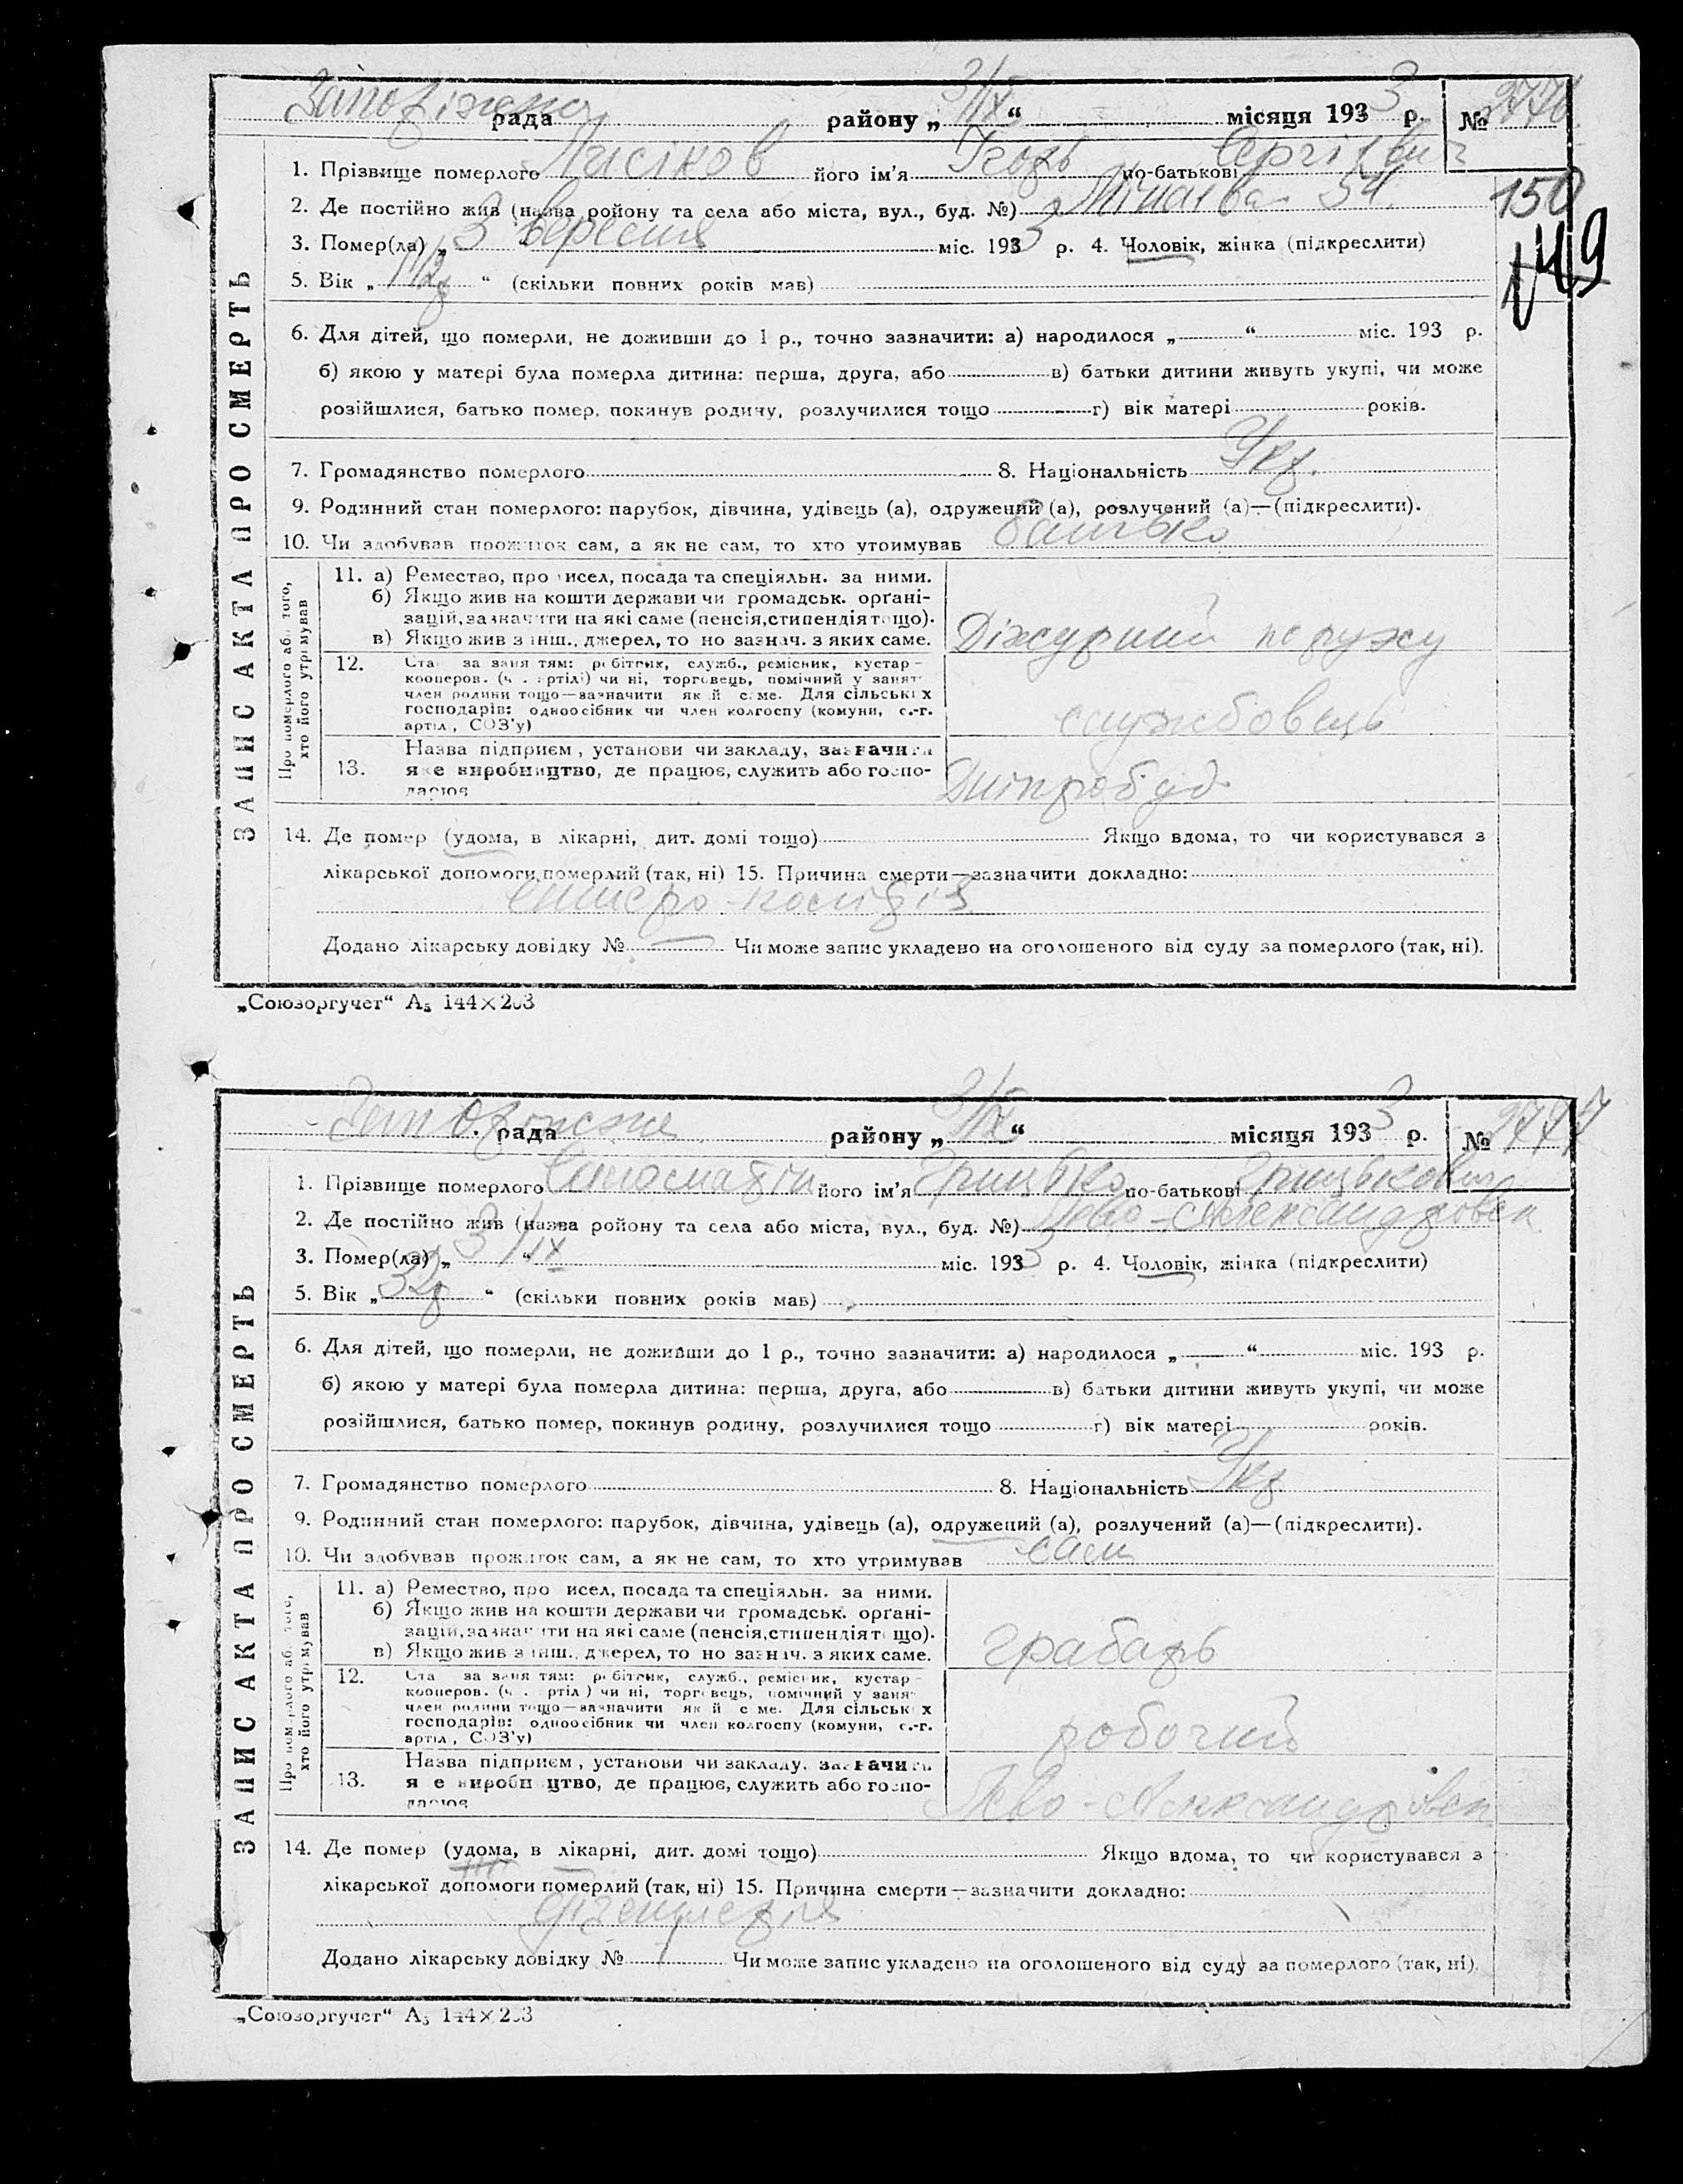 Запоріжська рада району „3/IX“ місяця 1933 р. № 2776
1. Прізвище померлого Лисіков його ім'я Ігорь по-батькові Сергієвич
2. Де постійно жив (назва ройону та села або міста, вул., буд. №) 54
150
3. Помер(ла) „3 вересня міс. 1933 р. 4. Чоловік, жінка (підкреслити)
149
5. Вік „1 1/2 р“ (скільки повних років мав)
6. Для дітей, що померли, не доживши до 1 р., точно зазначити: а) народилося „ “ міс. 193 р.
б) якою у матері була померла дитина: перша, друга, або в) батьки дитини живуть укупі, чи може
розійшлися, батько помер, покинув родину, розлучилися тощо г) вік матері років.
7. Громадянство померлого 8. Національність Укр.
9. Родинний стан померлого: парубок, дівчина, удівець (а), одружений (а), розлучений (а)—(підкреслити).
10. Чи здобував прожиток сам, а як не сам, то хто утримував батько
11. а) Ремество, про исел, посада та спеціяльн. за ними.
б) Якщо жив на кошти держави чи громадськ. орґані-
зацій, зазначити на які саме (пенсія, стипендія т що).
в) Якщо жив з інш., джерел, то но зазнач. з яких саме.
Діжурний по
12. Ста за заня тям: робітник, служб., ремісник, кустар-
кооперов. (ч . артілі) чи ні, торговець, помічний у занят
член родини тощо—зазначити як й саме. Для сільськ х
господарів: одноосібник чи член колгоспу (комуни, с.-г.
артіл, СОЗ'у)
службовець
Назва підприєм, установи чи закладу, зазначити
13. яке виробництво, де працює, служить або госпо-
дарює
Дніпробуд
14. Де помер (удома, в лікарні, дит. домі тощо) Якщо вдома, то чи користувався з
лікарської допомоги померлий (так, ні) 15. Причина смерти—зазначити докладно:
ентеро-колідіз
Додано лікарську довідку № — Чи може запис укладено на оголошеного від суду за померлого (так, ні).
ЗАПИС АКТА ПРО СМЕРТЬ
Про померлого або того,
хто його утримував
„Союзоргучет“ А₅ 144×203
Запоріжська рада району „3/IX“ місяця 1933 р. № 2777
1. Прізвище померлого його ім'я Грицько по-батькові Грицькович
2. Де постійно жив (назва ройону та села або міста, вул., буд. №) Ново-Александровка
3. Помер(ла) „3/IX“ міс. 1933 р. 4. Чоловік, жінка (підкреслити)
5. Вік „32р“ (скільки повних років мав)
6. Для дітей, що померли, не доживши до 1 р., точно зазначити: а) народилося „ “ міс. 193 р.
б) якою у матері була померла дитина: перша, друга, або в) батьки дитини живуть укупі, чи може
розійшлися, батько помер, покинув родину, розлучилися тощо г) вік матері років.
7. Громадянство померлого 8. Національність Укр
9. Родинний стан померлого: парубок, дівчина, удівець (а), одружений (а), розлучений (а)—(підкреслити).
10. Чи здобував прожиток сам, а як не сам, то хто утримував сам
11. а) Ремество, про исел, посада та спеціяльн. за ними.
б) Якщо жив на кошти держави чи громадськ. орґані-
зацій, зазначити на які саме (пенсія, стипендія т що).
в) Якщо жив з інш., джерел, то но зазнач. з яких саме.
грабарь
12. Ста за заня тям: робітник, служб., ремісник, кустар-
кооперов. (ч . артіл ) чи ні, торговець, помічний у заня
член родини тощо—зазначити як й с ме. Для сільськ х
господарів: одноосібник чи член колгоспу (комуни, с.-г.
артіл, СОЗ'у)
робочий
Назва підприєм, установи чи закладу, зазначить
13. я е виробн цтво, де працює, служить або госпо-
дарює
Ново-Александровка
14. Де помер (удома, в лікарні, дит. домі тощо) Якщо вдома, то чи користувався з
лікарської допомоги померлий (так, ні) 15. Причина смерти—зазначити докладно:
дізентерія
Додано лікарську довідку № Чи може запис укладено на оголошеного від суду за померлого (так, ні).
ЗАПИС АКТА ПРО СМЕРТЬ
Про померлого аб того,
хто його утримував
„Союзоргучет“ А₅ 144×203